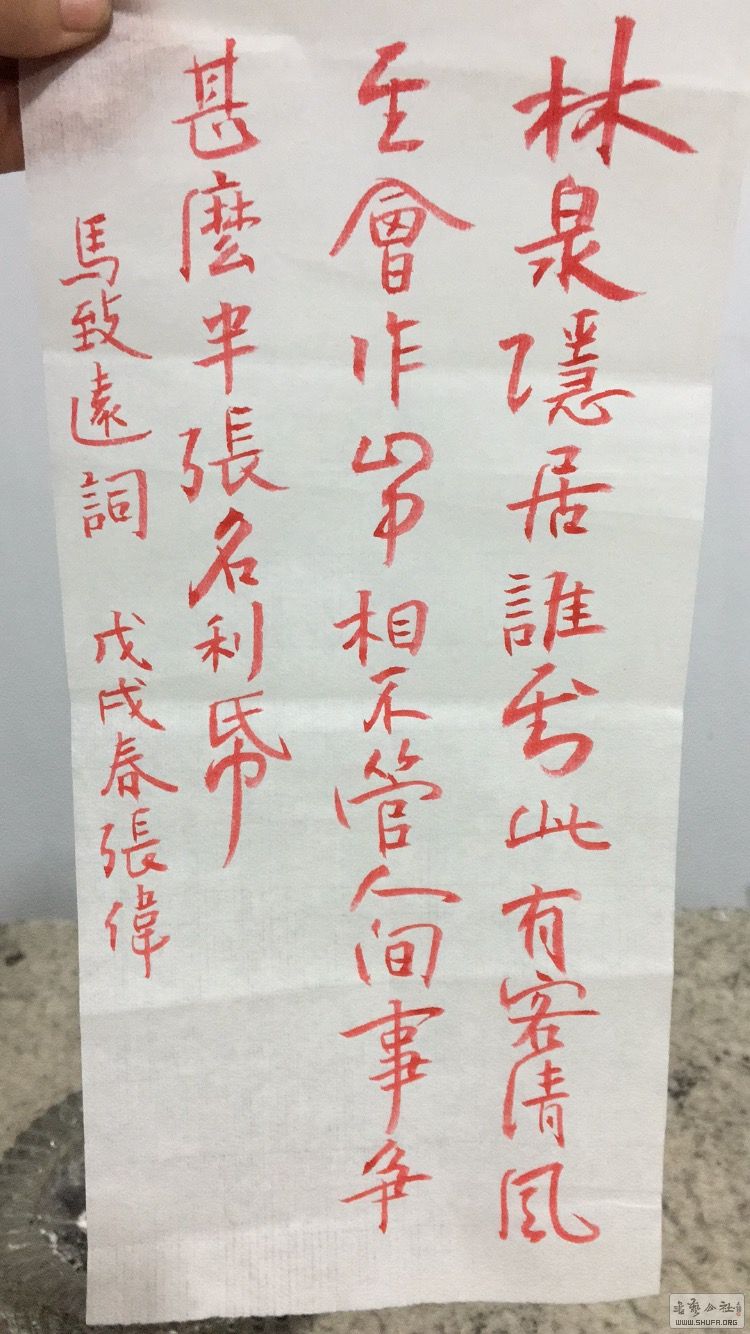 林泉隱居誰到此有客清風
至會作山中相不管人间事争
甚麼半張名利帋
馬致遠詞 戊戌春張偉
書藝公社
WWW.SHUFA.ORG